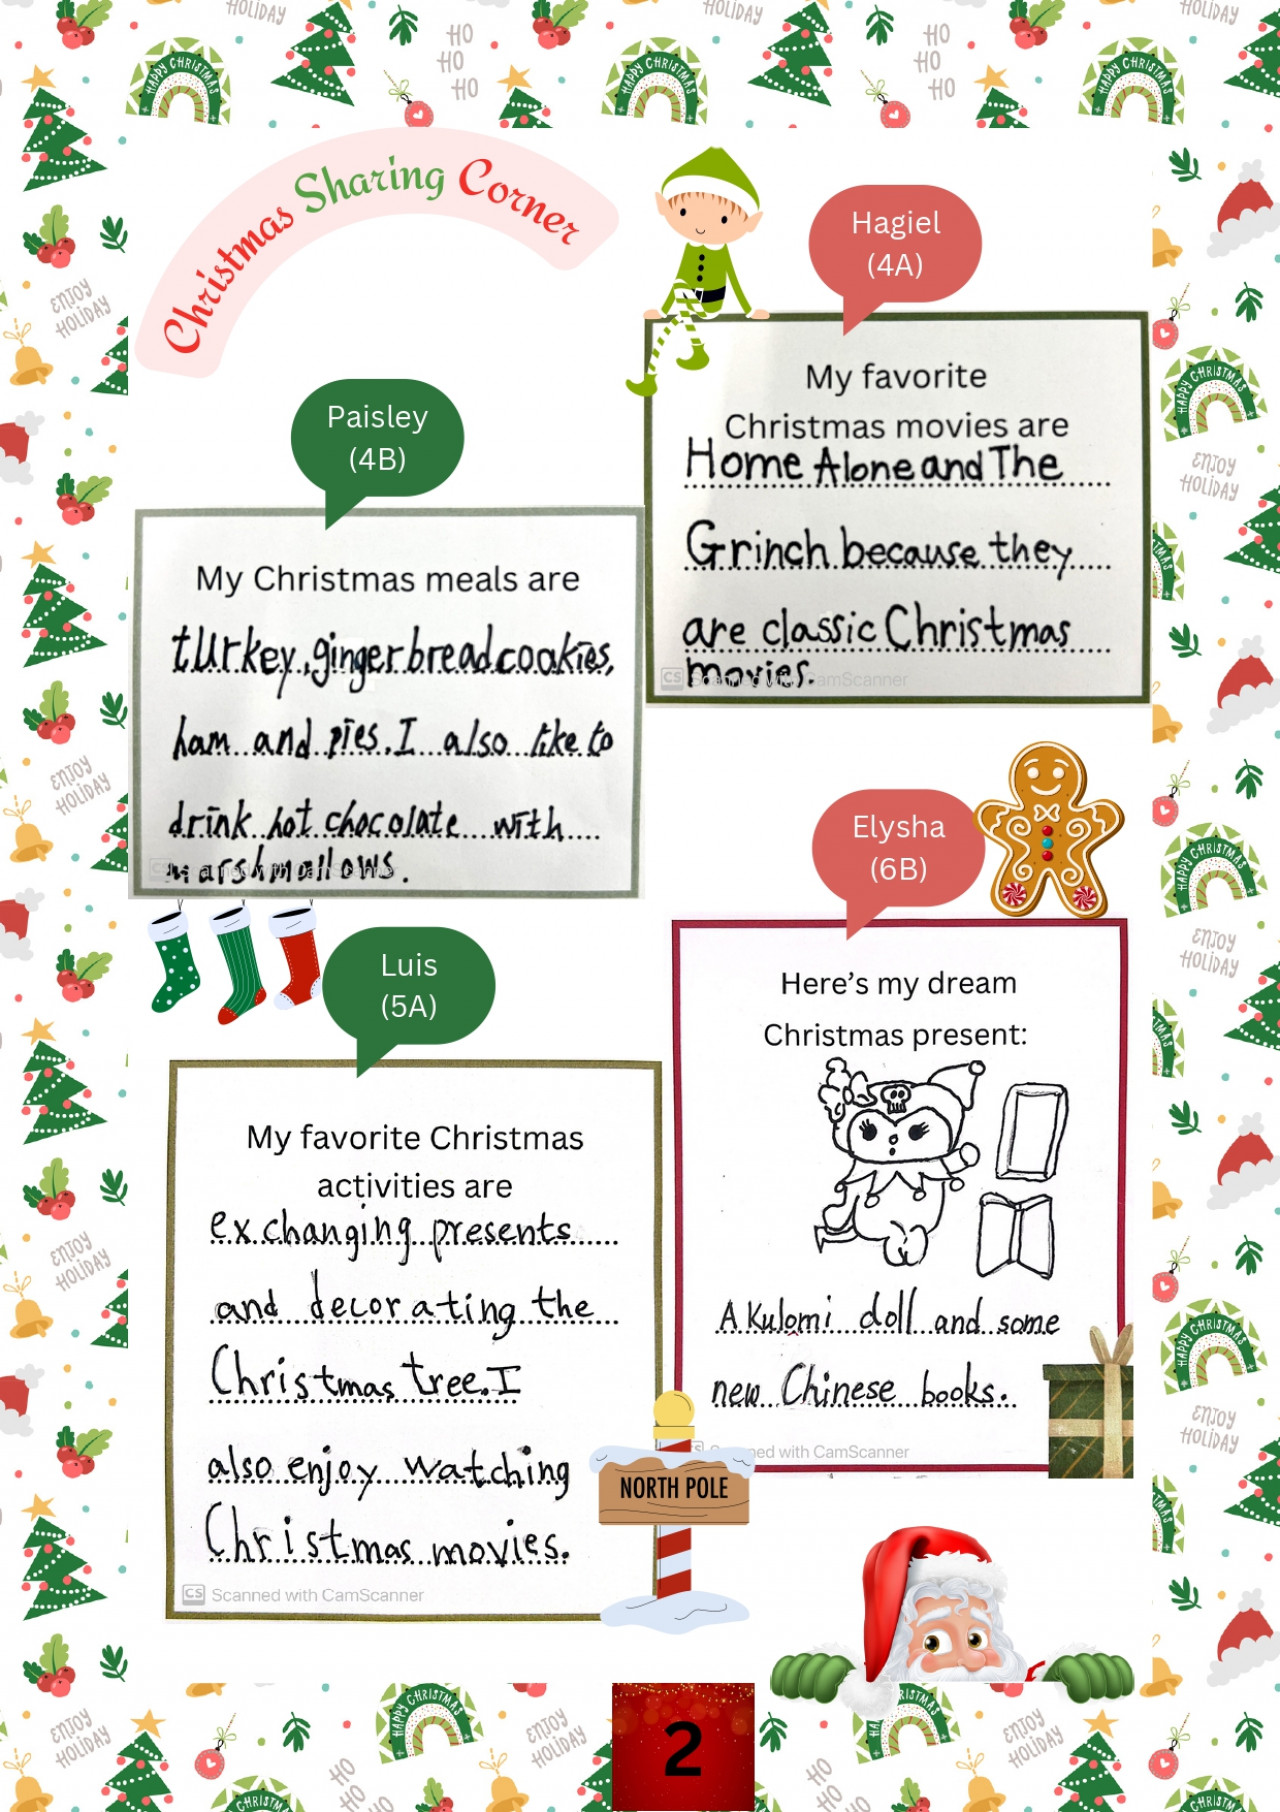 Christmas Sharing Corner
Hagiel
(4A)
My favorite
Christmas movies are
Home Alone and The
Grinch because they
are classic Christmas
movies.
Paisley
(4B)
My Christmas meals are
turkey, gingerbread cookies,
ham and pies. I also like to
drink hot chocolate with
marshmallows.
Elysha
(6B)
Here's my dream
Christmas present:
A Kulomi doll and some
new Chinese books.
CS Scanned with CamScanner
Luis
(5A)
My favorite Christmas
activities are
exchanging presents
and decorating the
Christmas tree. I
also enjoy watching
Christmas movies.
CS Scanned with CamScanner
NORTH POLE
2
HAPPY CHRISTMAS
ENJOY
HOLIDAY
HO
HO
HO